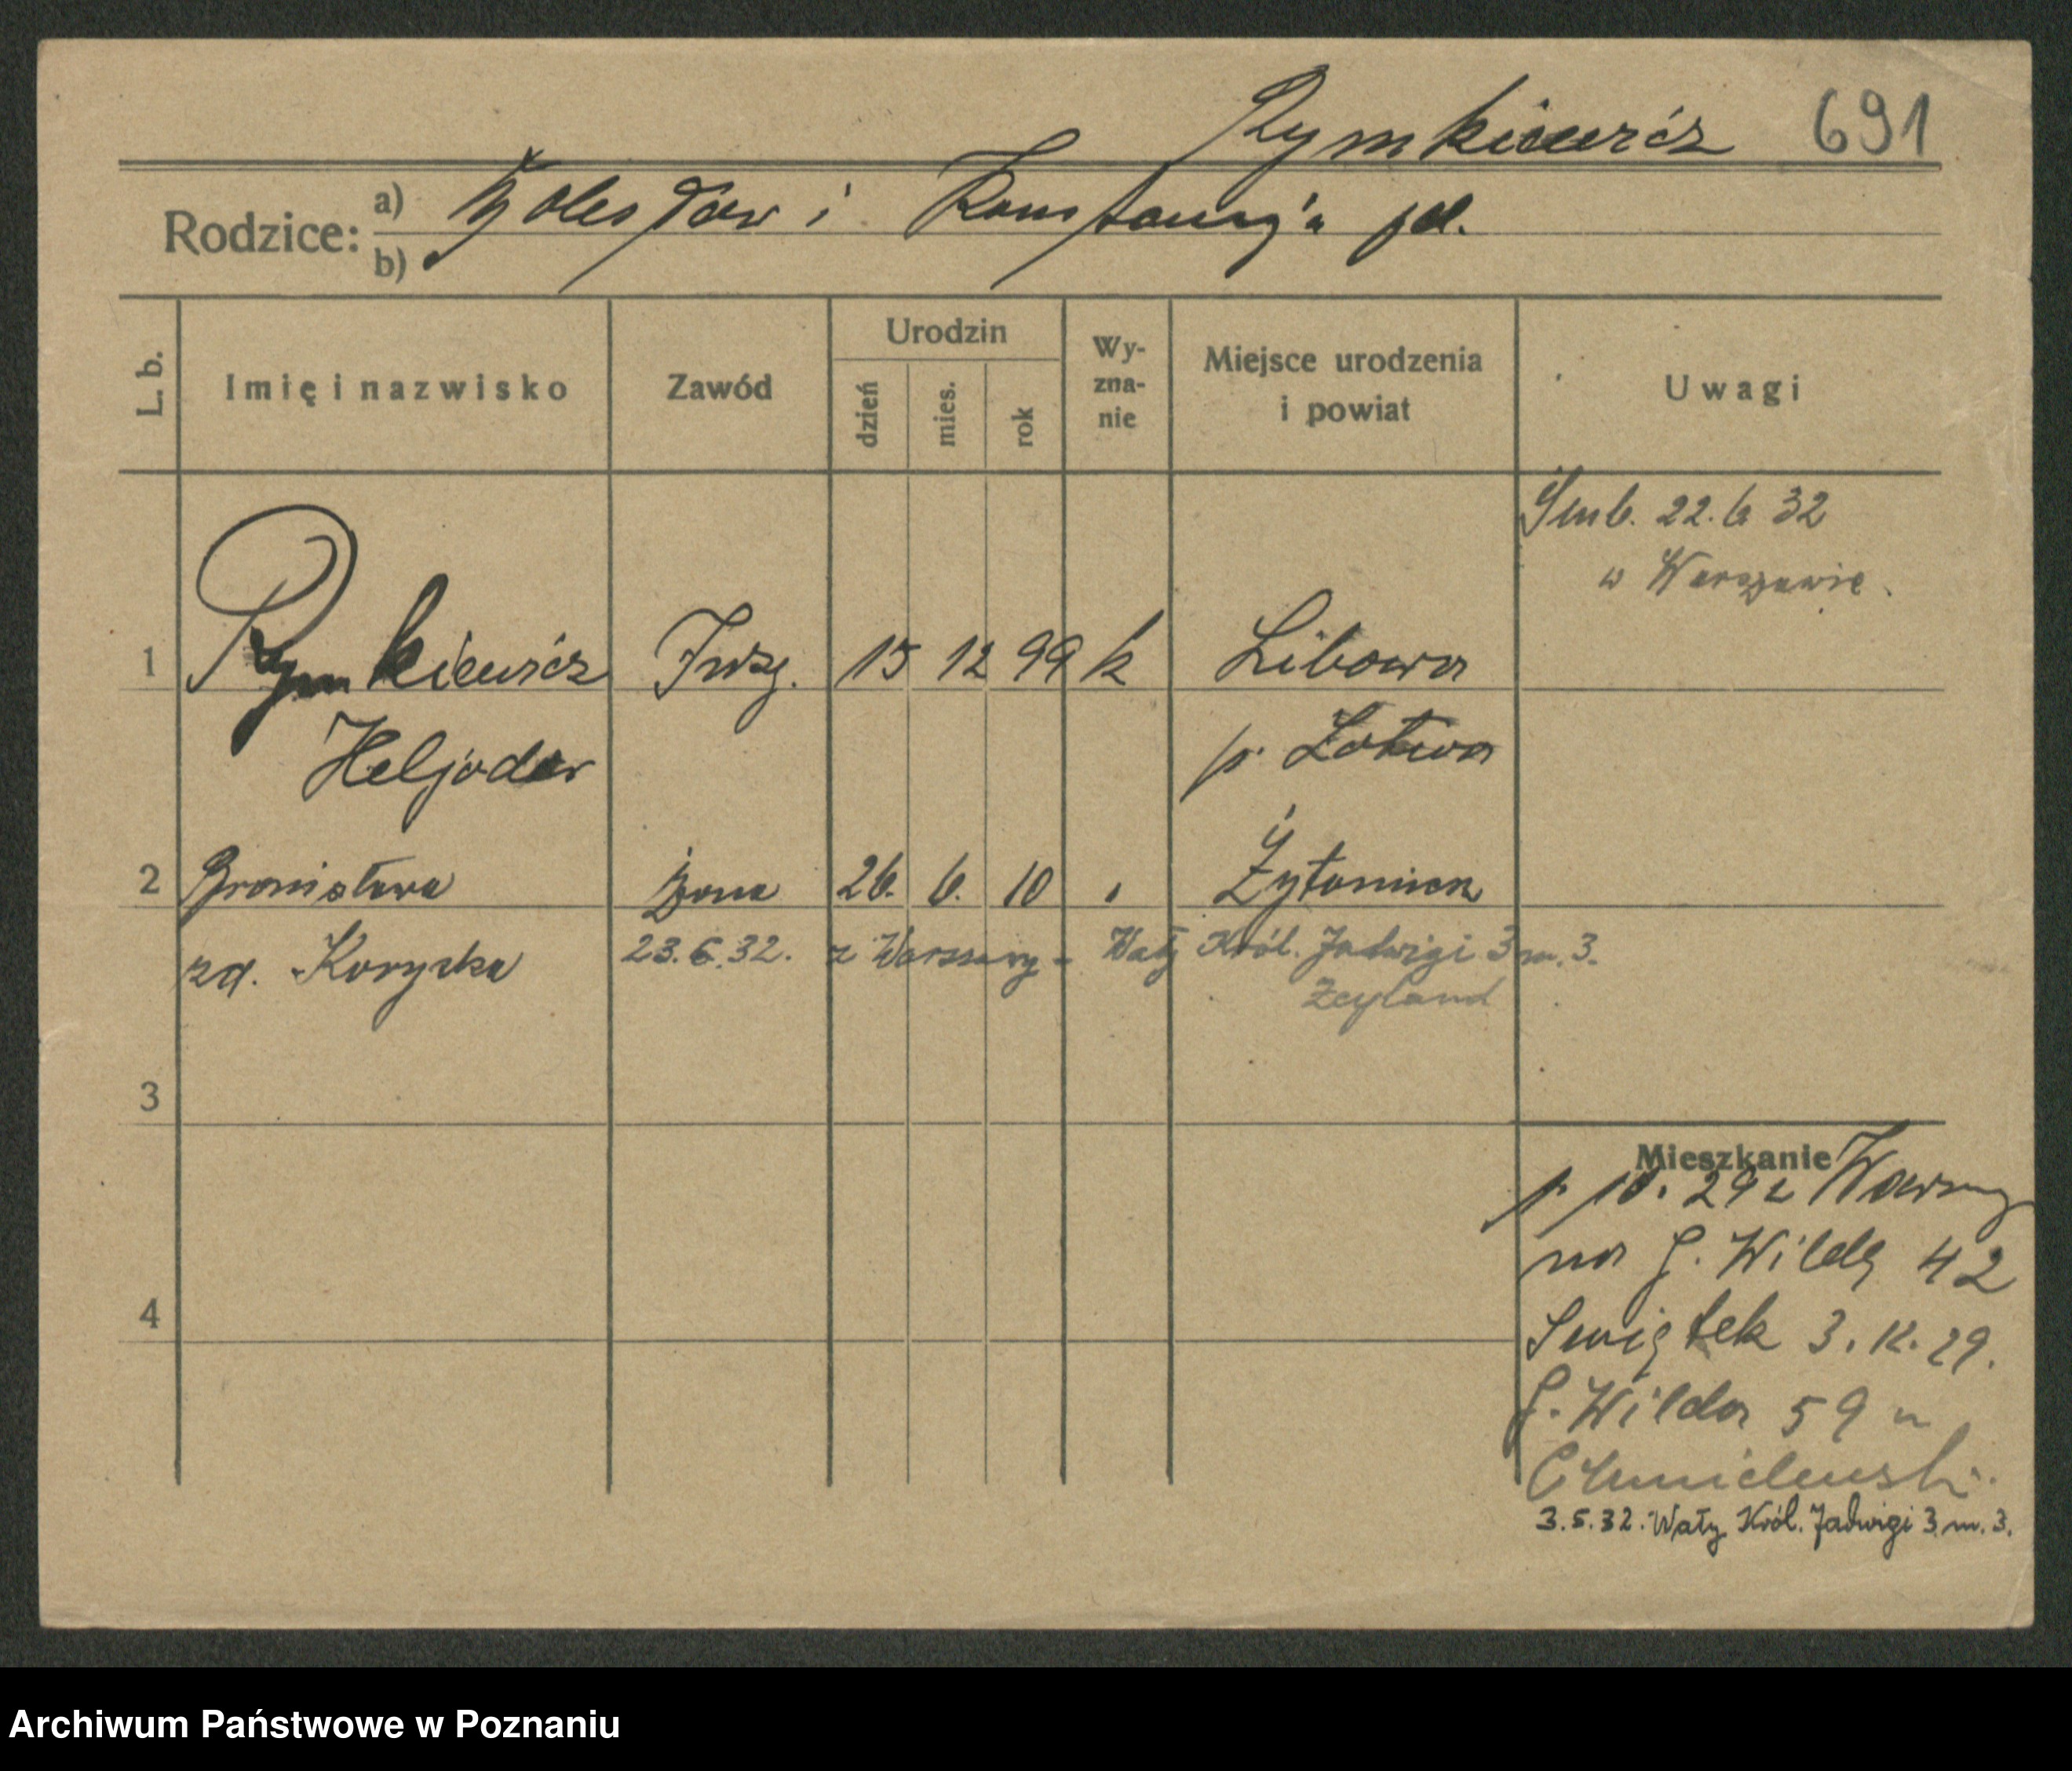 Rymkiewicz 691
Rodzice: a) Bolesław i Konstancja
b)
L. b. Imię i nazwisko Zawód Urodzin dzień mies. rok Wyznanie Miejsce urodzenia i powiat Uwagi
Ślub. 22. 6 32
w Warszawie.
1 Rymkiewicz Inż. 15 12 99 k Libawa
Heljodor p. Łotwa
2 Bronisława żona 26. 6. 10 Żytomierz
zd. Koryzka 23.6.32. z Warszawy - Wały Król. Jadwigi 3 m. 3.
Zeyland
3
Mieszkanie
p 10. 29 z Warszawy
na G. Wildę 42
Świątek 3. 12. 29.
G. Wilda 59 u
Chmielewski.
3.5.32. Wały Król. Jadwigi 3 m. 3.
4
Archiwum Państwowe w Poznaniu